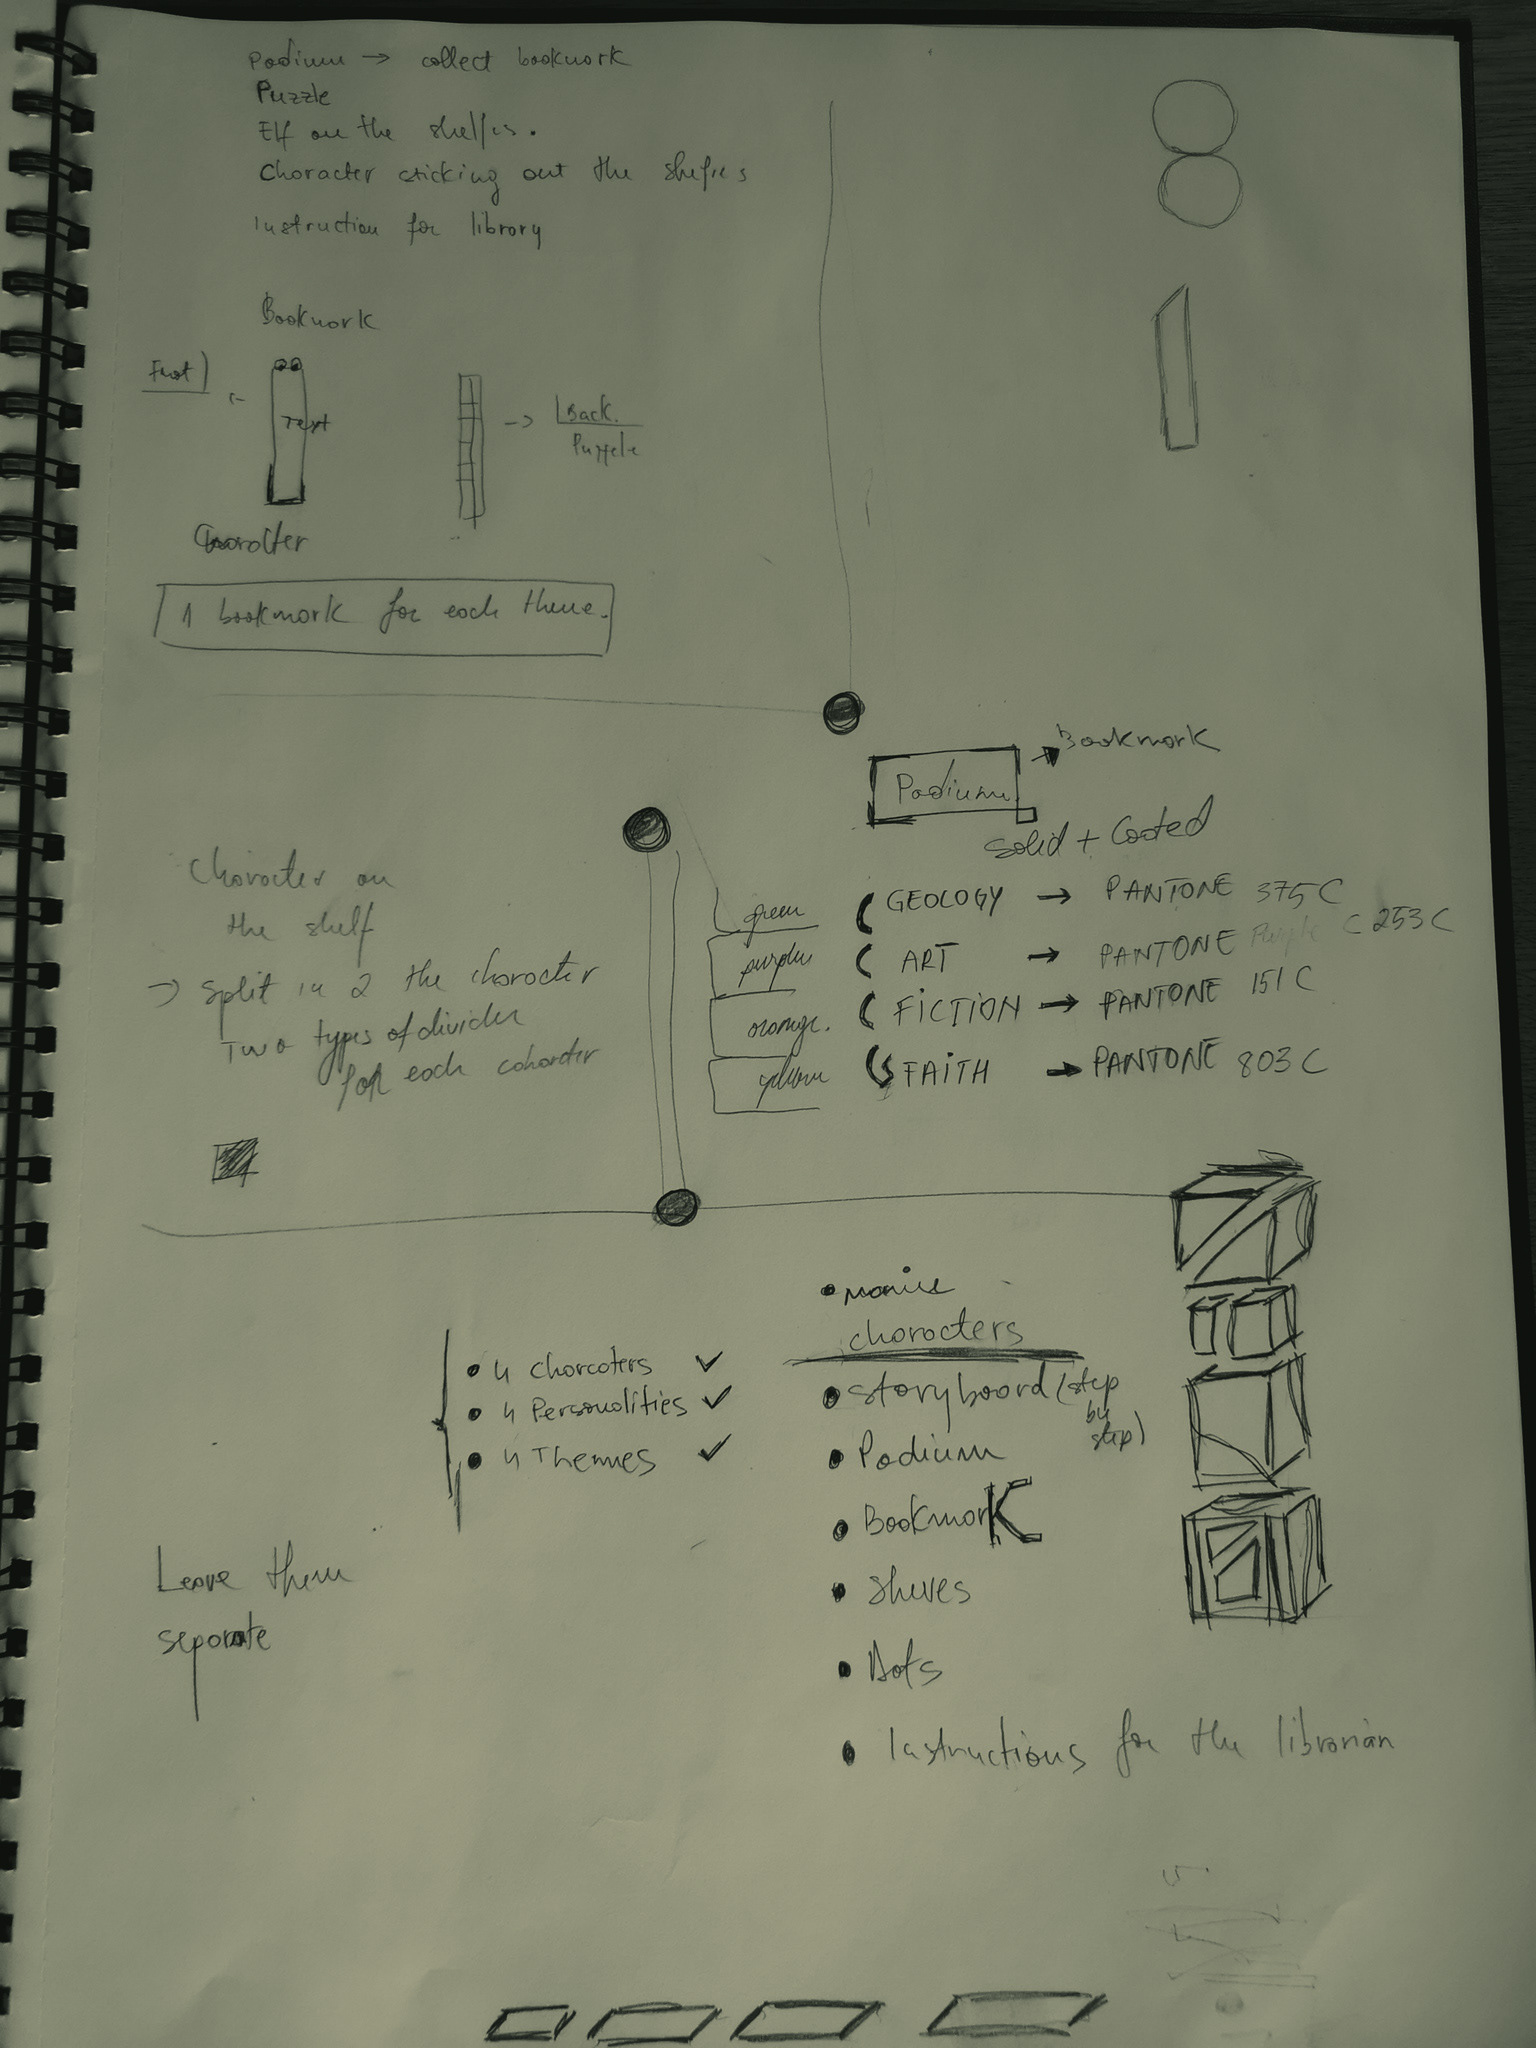 Podium → collect bookmark
Puzzle
Elf on the shelfes.
Character sticking out the shefies
Instruction for library
Bookmark
Text
→ Back.
Puzzele
Character
1 bookmark for each theme.
Bookmark
Podium
Solid + Coated
Character on
the shelf
→ Split in 2 the character
Two types of divider
for each cohorder
green GEOLOGY → PANTONE 375 C
purple ART → PANTONE Purple C 253 C
orange. FiCTION → PANTONE 151 C
yellow FAiTH → PANTONE 803 C
• 4 charcaters ✓
• 4 Personalities ✓
• 4 Themes ✓
Leave them
separate
characters
• storyboard (step
by
step)
• Podium
• Bookmark
• shelves
• Dots
• Instructions for the librarian